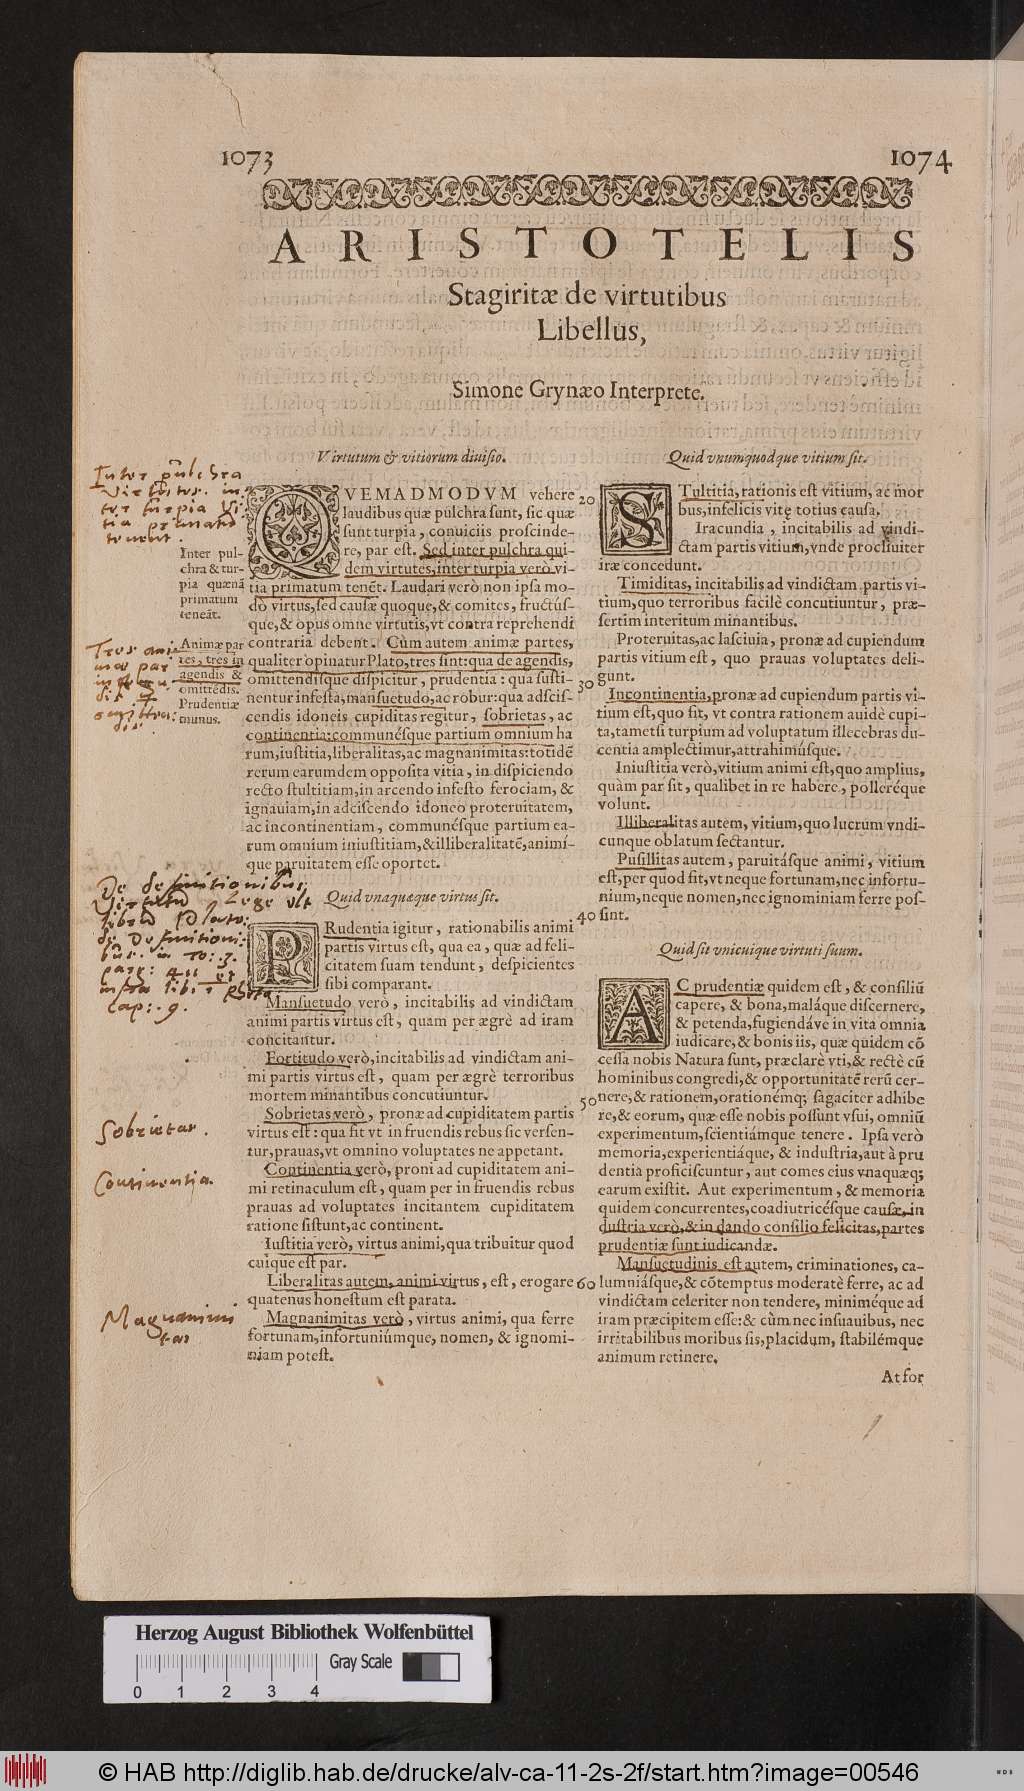 1073
1074
ARISTOTELIS
Stagiritæ de virtutibus
Libellus,
Simone Grynæo Interprete.
Virtutum & vitiorum diuisio.
QVEMADMODVM vehere
laudibus quæ pulchra sunt, sic quæ
sunt turpia, conuiciis proscinde-
re, par est. Sed inter pulchra qui-
dem virtutes, inter turpia verò vi-
tia primatum tenēt. Laudari verò non ipsa mo-
dò virtus, sed causæ quoque, & comites, fructús-
que, & opus omne virtutis, vt contra reprehendi
contraria debent. Cùm autem animæ partes,
qualiter opinatur Plato, tres sint: qua de agendis,
omittendisque dispicitur, prudentia: qua susti-
nentur infesta, mansuetudo, ac robur: qua adscis-
cendis idoneis cupiditas regitur, sobrietas, ac
continentia: communésque partium omnium ha
rum, iustitia, liberalitas, ac magnanimitas: totidē
rerum earumdem opposita vitia, in dispiciendo
recto stultitiam, in arcendo infesto ferociam, &
ignauiam, in adciscendo idoneo proteruitatem,
ac incontinentiam, communésque partium ea-
rum omnium iniustitiam, & illiberalitatē, animí-
que paruitatem esse oportet.
Inter pulchra
Virtutes. in-
ter turpia Vi-
tia primatū
tenent.
Inter pul-
chra & tur-
pia quænā
primatum
teneāt.
Tres ani-
mæ par
Animæ par
tes, tres in
agendis &
omittēdis.
Prudentiæ
munus.
Quid vnaquæque virtus sit.
PRudentia igitur, rationabilis animi
partis virtus est, qua ea, quæ ad feli-
citatem suam tendunt, despicientes
sibi comparant.
Mansuetudo verò, incitabilis ad vindictam
animi partis virtus est, quam per ægrè ad iram
concitantur.
Fortitudo verò, incitabilis ad vindictam ani-
mi partis virtus est, quam per ægrè terroribus
mortem minantibus concutiuntur.
Sobrietas verò, pronæ ad cupiditatem partis
virtus est: qua fit vt in fruendis rebus sic versen-
tur, prauas, vt omnino voluptates ne appetant.
Continentia verò, proni ad cupiditatem ani-
mi retinaculum est, quam per in fruendis rebus
prauas ad voluptates incitantem cupiditatem
ratione sistunt, ac continent.
Iustitia verò, virtus animi, qua tribuitur quod
cuique est par.
Liberalitas autem, animi virtus, est, erogare
quatenus honestum est parata.
Magnanimitas verò, virtus animi, qua ferre
fortunam, infortuniúmque, nomen, & ignomi-
niam potest.
De definitionibus
Virtutū Lege ult
librū Plato:
de Definitioni-
bus. in To: 3.
pag: 411 et
infra libi 1 Rheto
Cap: 9.
Sobrietas.
Continentia
Magnanimi
tas
20
30
40
50
60
Quid vnumquodque vitium sit.
STultitia, rationis est vitium, ac mor
bus, infelicis vitę totius causa.
Iracundia, incitabilis ad vindi-
ctam partis vitium, vnde procliuiter
iræ concedunt.
Timiditas, incitabilis ad vindictam partis vi-
tium, quo terroribus facilè concutiuntur, præ-
sertim interitum minantibus.
Proteruitas, ac lasciuia, pronæ ad cupiendum
partis vitium est, quo prauas voluptates deli-
gunt.
Incontinentia, pronæ ad cupiendum partis vi-
tium est, quo fit, vt contra rationem auidè cupi-
ta, tametsi turpium ad voluptatum illecebras du-
centia amplectimur, attrahimúsque.
Iniustitia verò, vitium animi est, quo amplius,
quàm par sit, qualibet in re habere, polleréque
volunt.
Illiberalitas autem, vitium, quo lucrum vndi-
cunque oblatum sectantur.
Pusillitas autem, paruitásque animi, vitium
est, per quod fit, vt neque fortunam, nec infortu-
nium, neque nomen, nec ignominiam ferre pos-
sint.
Quid sit vnicuique virtuti suum.
AC prudentiæ quidem est, & consiliū
capere, & bona, maláque discernere,
& petenda, fugiendáve in vita omnia
iudicare, & bonis iis, quæ quidem cō
cessa nobis Natura sunt, præclarè vti, & rectè cū
hominibus congredi, & opportunitatē rerū cer-
nere, & rationem, orationémq; sagaciter adhibe
re, & eorum, quæ esse nobis possunt vsui, omniū
experimentum, scientiámque tenere. Ipsa verò
memoria, experientiáque, & industria, aut à pru
dentia proficiscuntur, aut comes eius vnaquæq;
earum existit. Aut experimentum, & memoria
quidem concurrentes, coadiutricésque causæ, in
dustria verò, & in dando consilio felicitas, partes
prudentiæ sunt iudicandæ.
Mansuetudinis est autem, criminationes, ca-
lumniásque, & cōtemptus moderatè ferre, ac ad
vindictam celeriter non tendere, miniméque ad
iram præcipitem esse: & cùm nec insuauibus, nec
irritabilibus moribus sis, placidum, stabilémque
animum retinere.
At for
Herzog August Bibliothek Wolfenbüttel
Gray Scale
0 1 2 3 4
© HAB http://diglib.hab.de/drucke/alv-ca-11-2s-2f/start.htm?image=00546